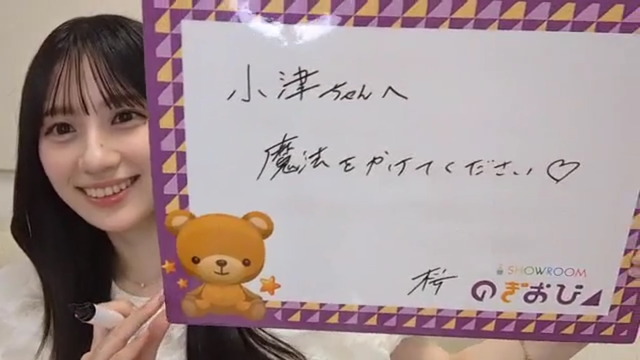 小津ちゃんへ
魔法をかけてください♡
桜
SHOWROOM
のぎおび